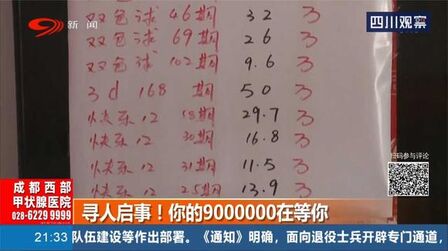 新闻
四川观察
双色球 46期 32 万
双色球 69期 26 万
双色球 102期 9.6 万
3d 168 期 50 万
快乐12 期 29.7 万
快乐12 30期 16.8 万
快乐12 31期 11.5 万
快乐12 25期 13.9 万
扫码参与评论
成都西部
甲状腺医院
028-6229 9999
寻人启事！你的9000000在等你
21:33 队伍建设等作出部署。《通知》明确，面向退役士兵开辟专门通道